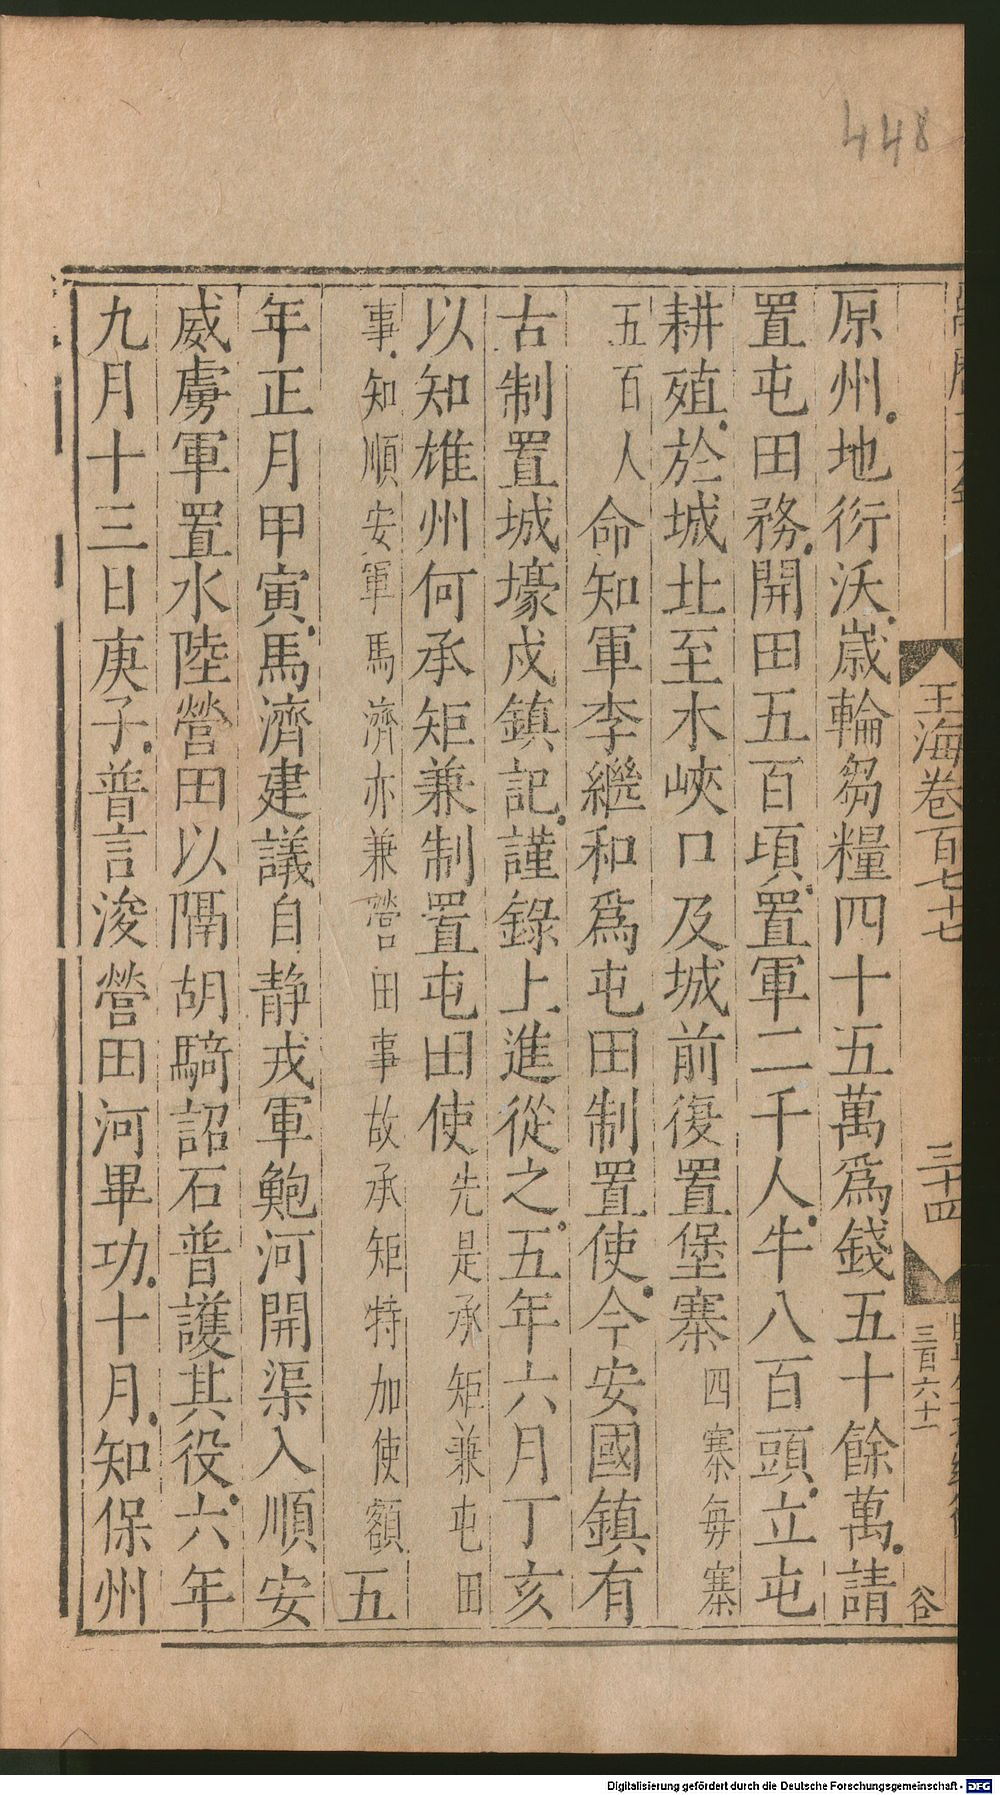 448
王海卷百七十七
三十四
三百六十一
谷
原州地衍沃歲輪芻糧四十五萬爲錢五十餘萬請
置屯田務開田五百頃置軍二千人牛八百頭立屯
耕殖於城北至木峽口及城前復置堡寨四寨每寨
五百人命知軍李繼和爲屯田制置使今安國鎮有
古制置城壕戍鎮記謹錄上進從之五年六月丁亥
以知雄州何承矩兼制置屯田使先是承矩兼屯田
事知順安軍馬濟亦兼營田事故承矩特加使額五
年正月甲寅馬濟建議自静戎軍鮑河開渠入順安
威虜軍置水陸營田以隔胡騎詔石普護其役六年
九月十三日庚子普言浚營田河畢功十月知保州
Digitalisierung gefördert durch die Deutsche Forschungsgemeinschaft - DFG